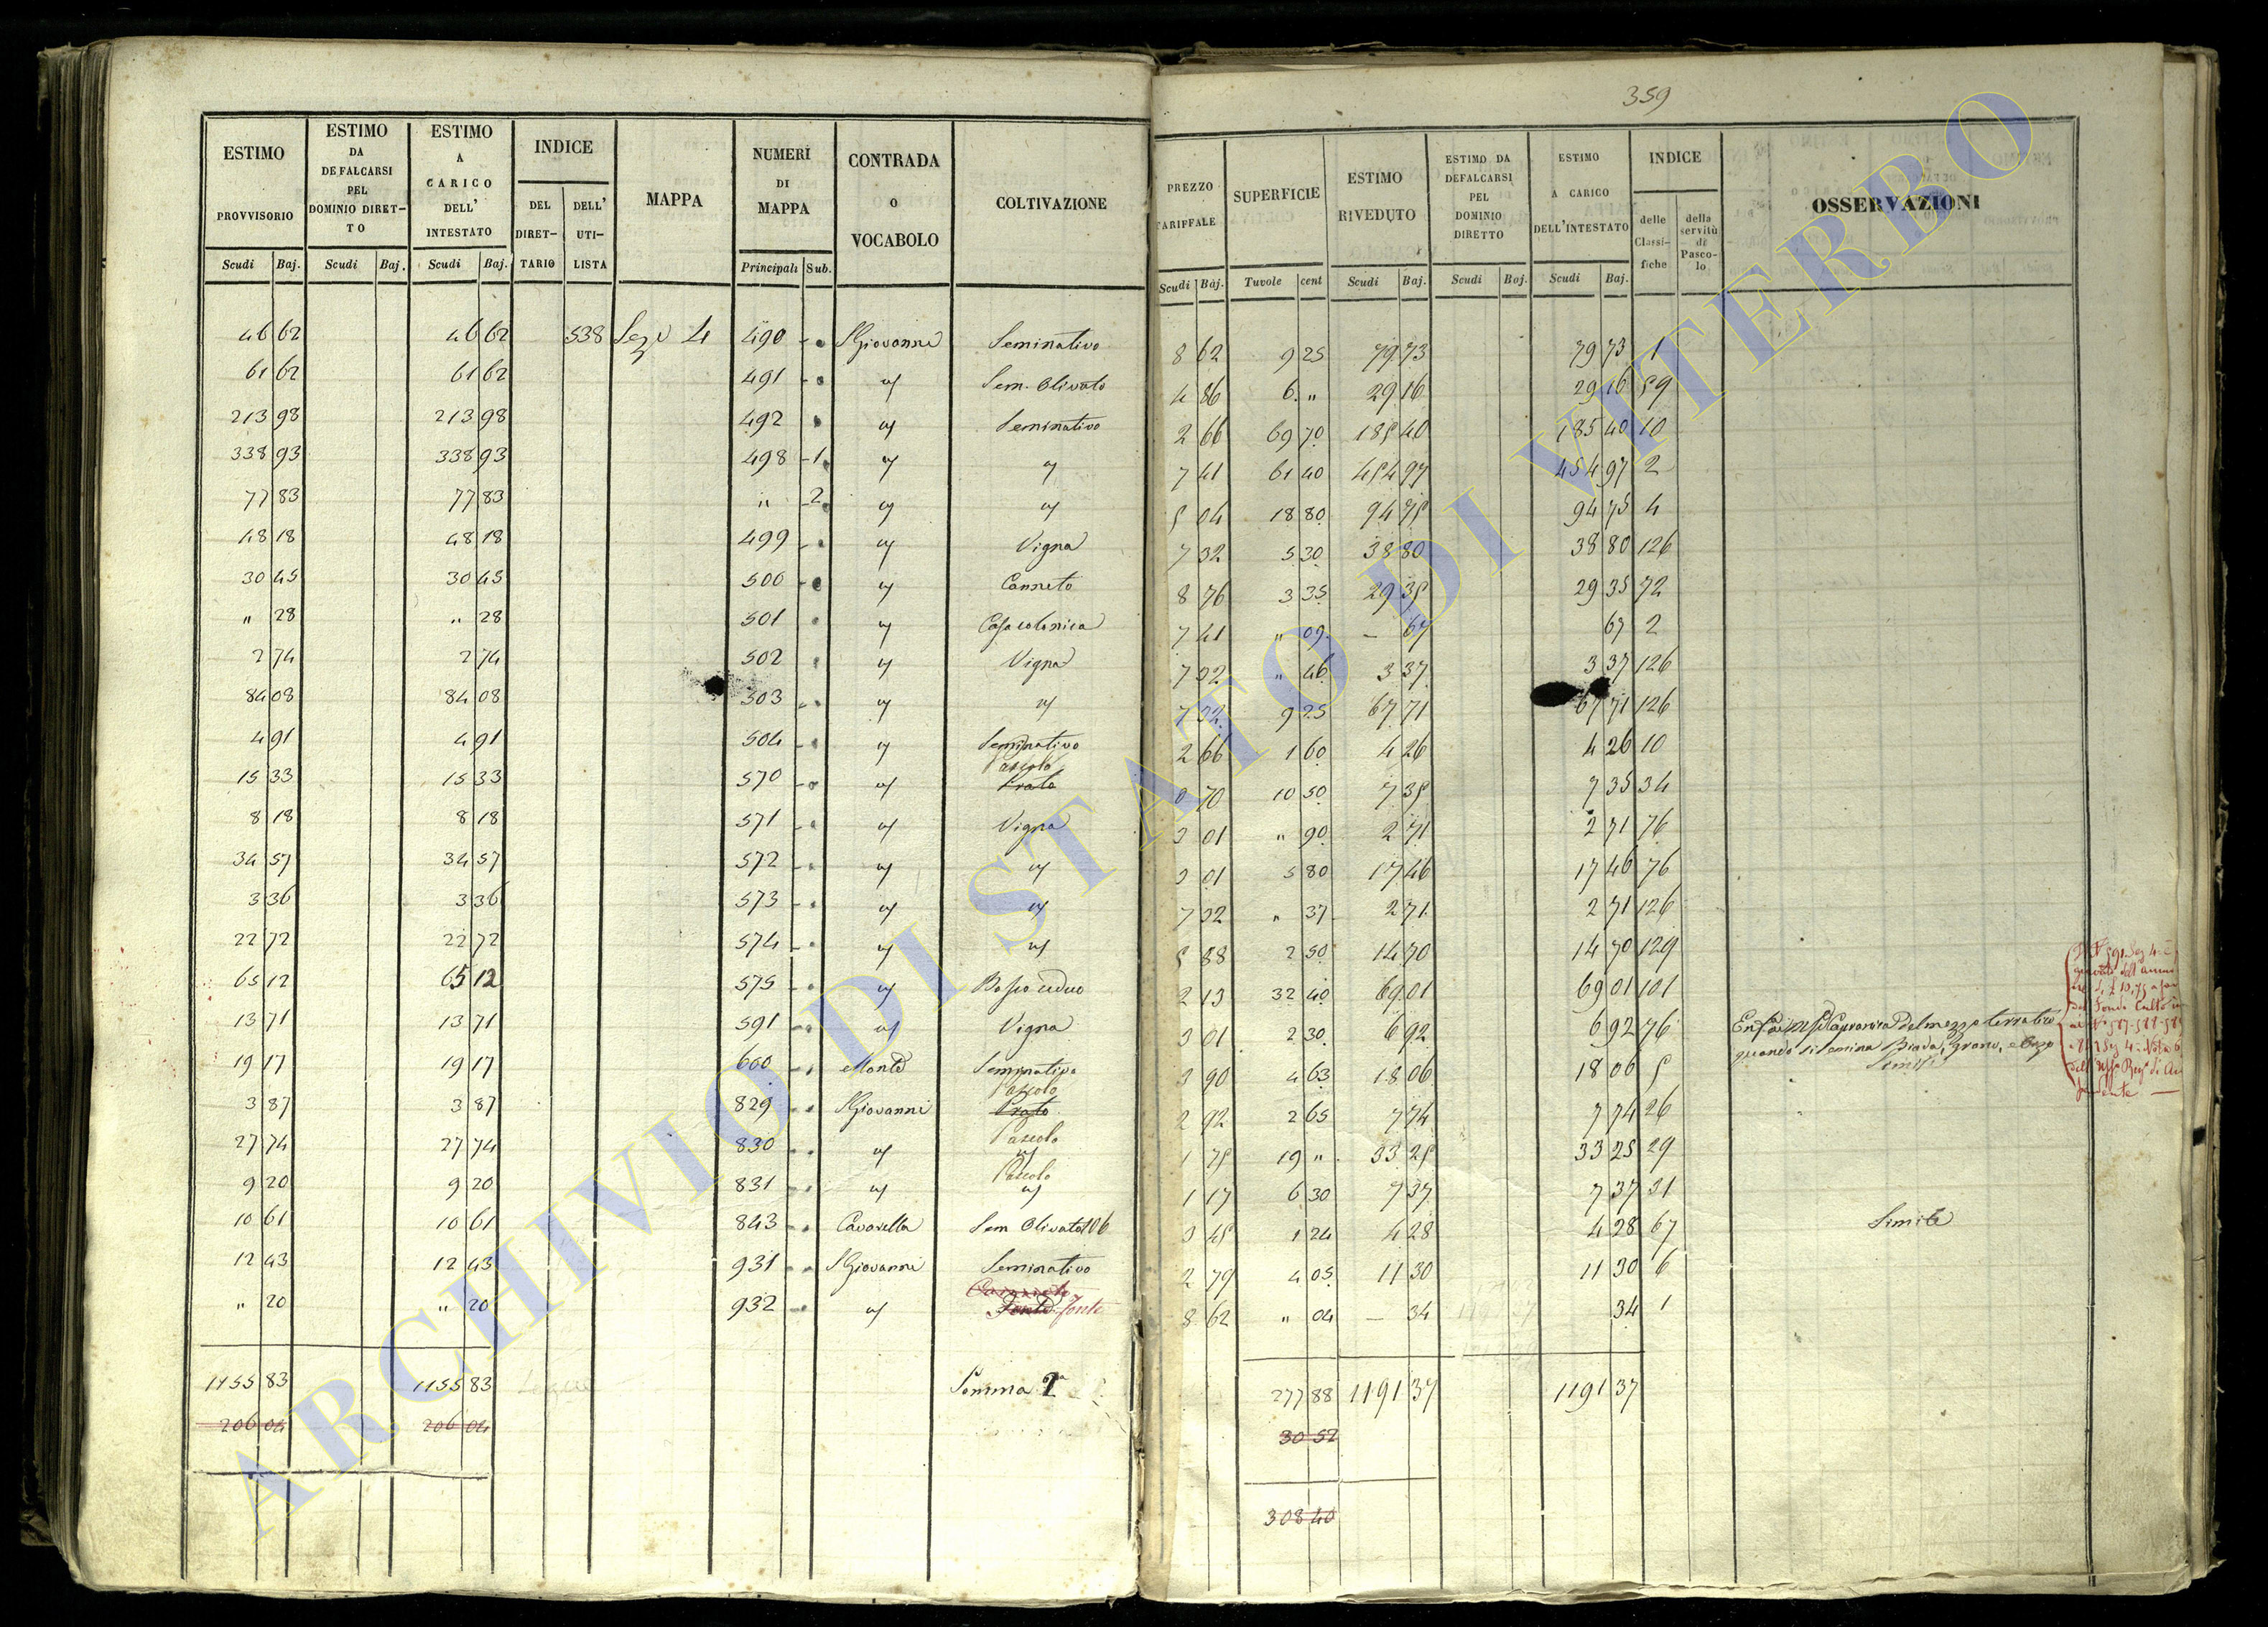 359
ESTIMO PROVVISORIO | ESTIMO DA DEFALCARSI PEL DOMINIO DIRETTO | ESTIMO A CARICO DELL' INTESTATO | INDICE | MAPPA | NUMERI DI MAPPA | CONTRADA O VOCABOLO | COLTIVAZIONE | PREZZO TARIFFALE | SUPERFICIE | ESTIMO RIVEDUTO | ESTIMO DA DEFALCARSI PEL DOMINIO DIRETTO | ESTIMO A CARICO DELL'INTESTATO | INDICE | OSSERVAZIONI
DEL DIRETTARIO | DELL' UTILISTA | delle Classifiche | della servitù di Pascolo
Scudi | Baj. | Scudi | Baj. | Scudi | Baj. | Principali | Sub. | Scudi | Baj. | Tavole | cent | Scudi | Baj. | Scudi | Baj. | Scudi | Baj.
46 62 | 46 62 | 538 | Sez. 4 | 490 | S Giovanni | Seminativo | 8 62 | 9 25 | 79 73 | 79 73 | 1
61 62 | 61 62 | 491 | " | Sem. Olivato | 4 86 | 6 " | 29 16 | 29 16 | 59
213 98 | 213 98 | 492 | " | Seminativo | 2 66 | 69 70 | 185 40 | 185 40 | 10
338 93 | 338 93 | 498 | 1 | " | " | 7 41 | 61 40 | 454 97 | 454 97 | 2
77 83 | 77 83 | " | 2 | " | " | 5 04 | 18 80 | 94 75 | 94 75 | 4
48 18 | 48 18 | 499 | " | Vigna | 7 32 | 5 30 | 38 80 | 38 80 | 126
30 45 | 30 45 | 500 | " | Canneto | 8 76 | 3 35 | 29 35 | 29 35 | 72
" 28 | " 28 | 501 | " | Casa colonica | 7 41 | " 09 | – 67 | 67 | 2
2 74 | 2 74 | 502 | " | Vigna | 7 32 | " 46 | 3 37 | 3 37 | 126
84 08 | 84 08 | 503 | " | " | 7 32 | 9 25 | 67 71 | 67 71 | 126
4 91 | 4 91 | 504 | " | Seminativo | 2 66 | 1 60 | 4 26 | 4 26 | 10
15 33 | 15 33 | 570 | " | Pascolo Prato | 0 70 | 10 50 | 7 35 | 7 35 | 34
8 18 | 8 18 | 571 | " | Vigna | 3 01 | " 90 | 2 71 | 2 71 | 76
34 57 | 34 57 | 572 | " | " | 3 01 | 5 80 | 17 46 | 17 46 | 76
3 36 | 3 36 | 573 | " | " | 7 32 | " 37 | 2 71 | 2 71 | 126
22 72 | 22 72 | 574 | " | " | 5 88 | 2 50 | 14 70 | 14 70 | 129
65 12 | 65 12 | 575 | " | Bosco ceduo | 2 13 | 32 40 | 69 01 | 69 01 | 101
13 71 | 13 71 | 591 | " | Vigna | 3 01 | 2 30 | 6 92 | 6 92 | 76 | del mezzo terratico
quando si semina Biada, Grano, e Orzo
19 17 | 19 17 | 660 | Monte | Seminativo | 3 90 | 4 63 | 18 06 | 18 06 | 5 | Simile
3 87 | 3 87 | 829 | S Giovanni | Pascolo Prato | 2 92 | 2 65 | 7 74 | 7 74 | 26
27 74 | 27 74 | 830 | " | Pascolo " | 1 75 | 19 " | 33 25 | 33 25 | 29
9 20 | 9 20 | 831 | " | Pascolo " | 1 17 | 6 30 | 7 37 | 7 37 | 31
10 61 | 10 61 | 843 | Cavarella | Sem Olivato 106 | 3 45 | 1 24 | 4 28 | 4 28 | 67 | Simile
12 43 | 12 43 | 931 | S Giovanni | Seminativo | 2 79 | 4 05 | 11 30 | 11 30 | 6
" 20 | " 20 | 932 | " | Fonte | 8 62 | " 04 | – 34 | 34 | 1
1155 83 | 1155 83 | Somma | 277 88 | 1191 37 | 1191 37
206 04 | 206 04 | 30 52
308 40
ARCHIVIO DI STATO DI VITERBO